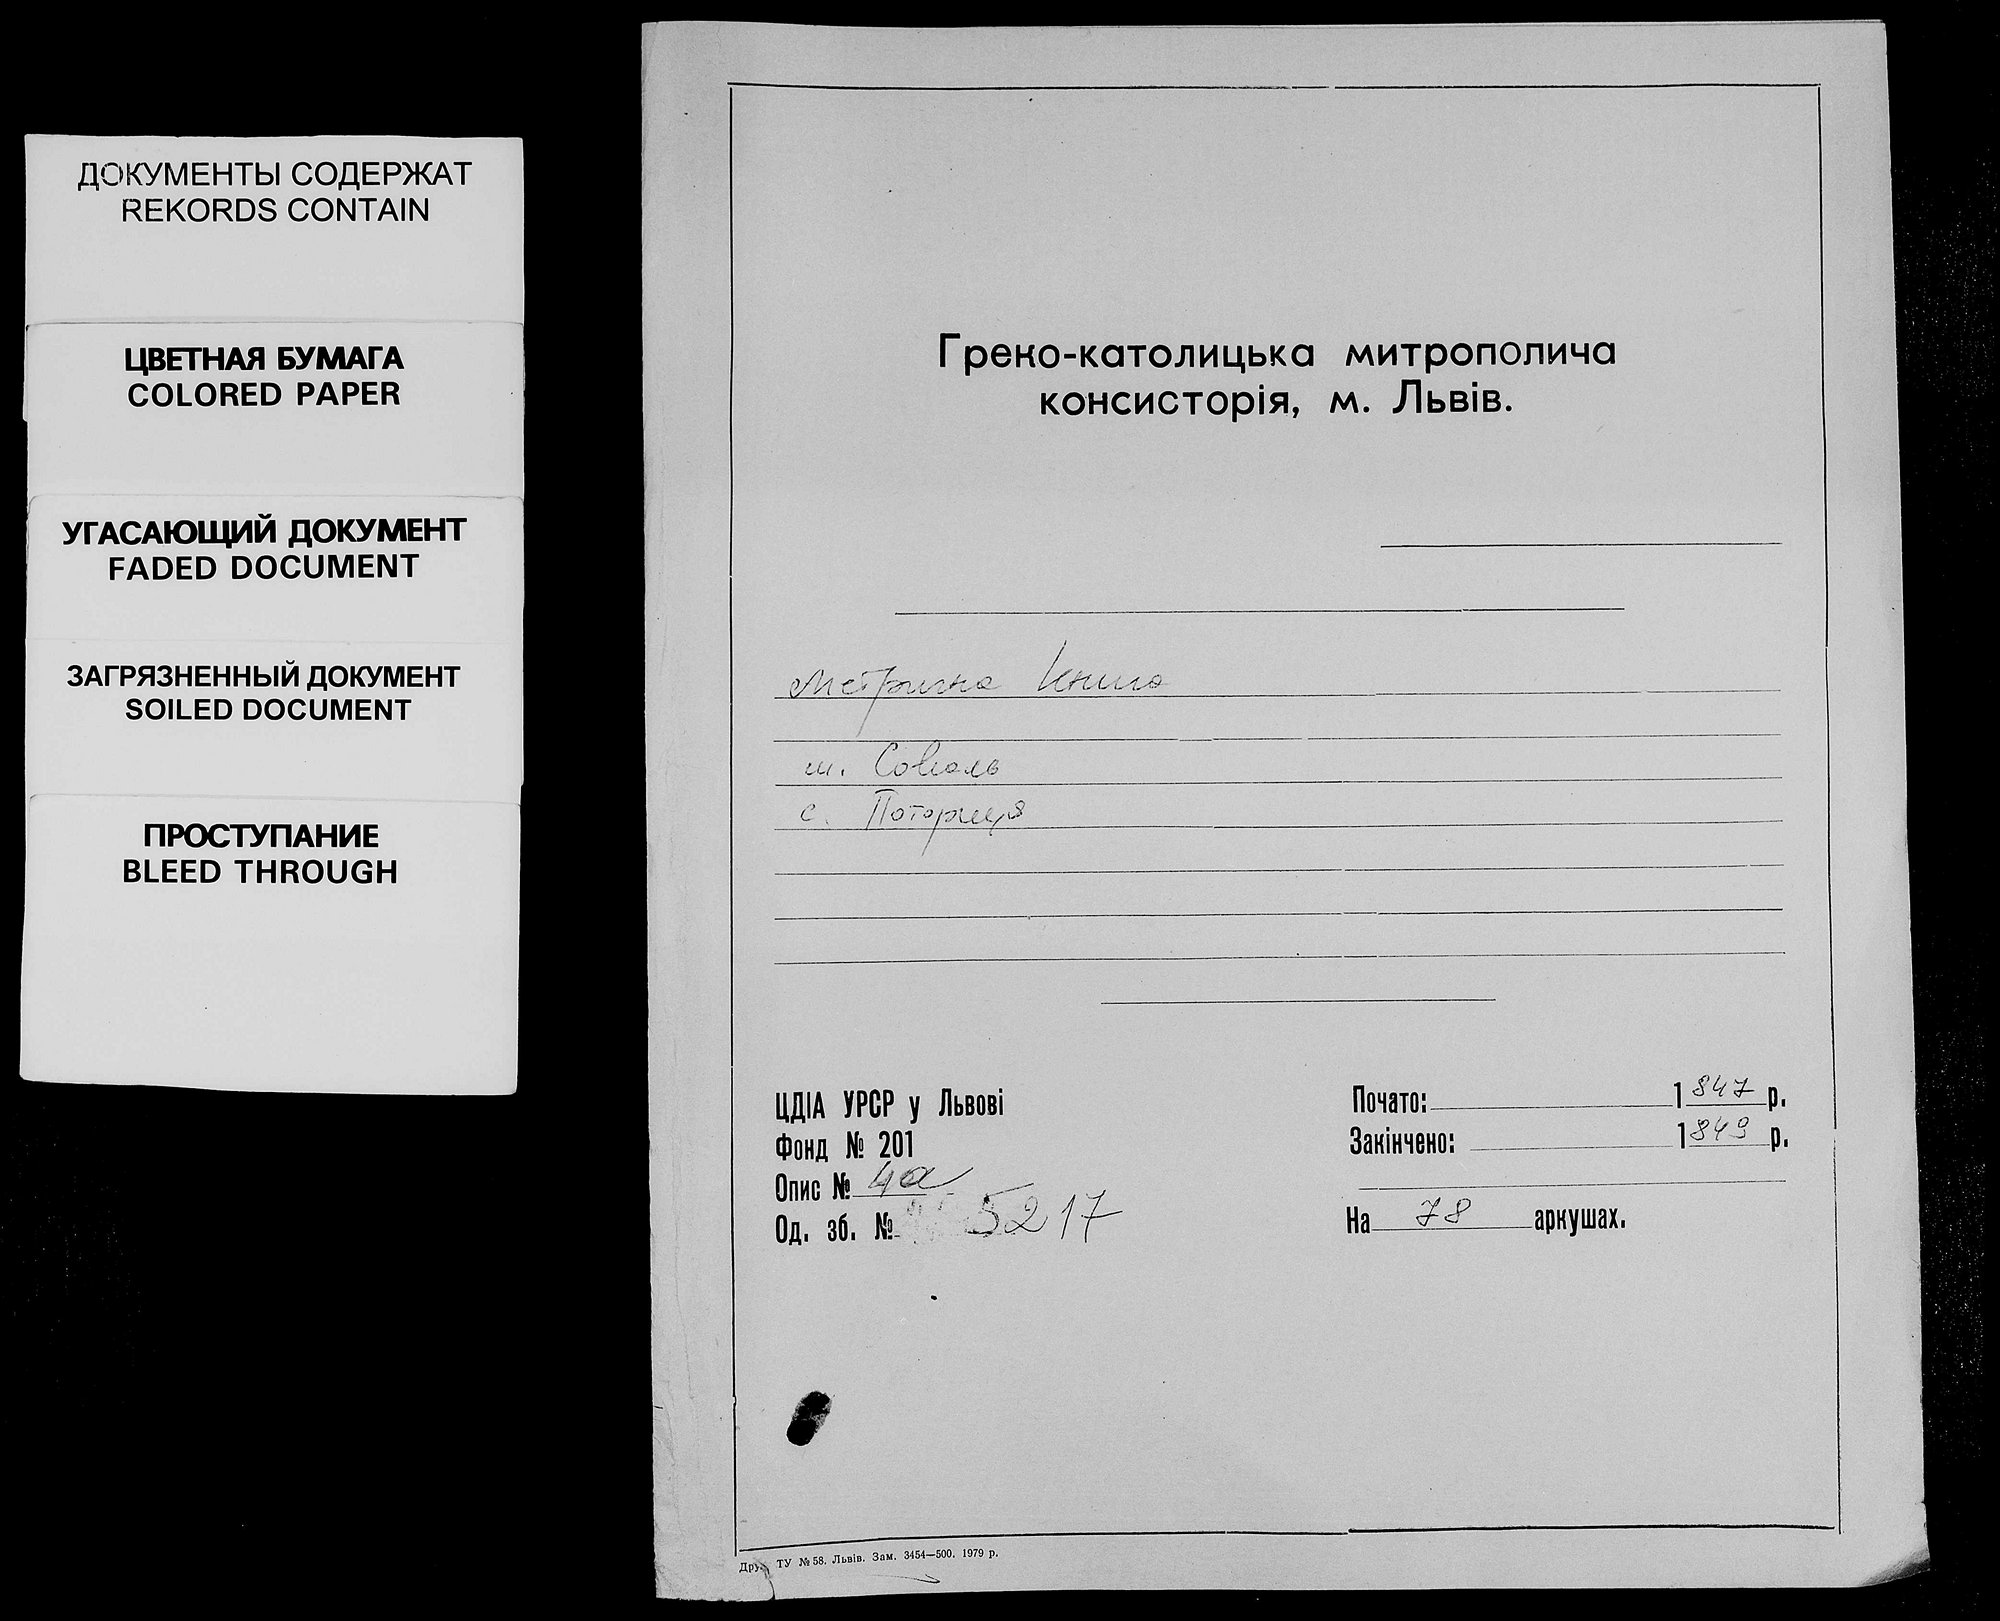 ДОКУМЕНТЫ СОДЕРЖАТ
REKORDS CONTAIN
ЦВЕТНАЯ БУМАГА
COLORED PAPER
УГАСАЮЩИЙ ДОКУМЕНТ
FADED DOCUMENT
ЗАГРЯЗНЕННЫЙ ДОКУМЕНТ
SOILED DOCUMENT
ПРОСТУПАНИЕ
BLEED THROUGH
Греко-католицька митрополича
консисторія, м. Львів.
Метрична книга
м. Сокаль
с. Поториця
ЦДІА УРСР у Львові
Фонд № 201
Опис № 4а
Од. зб. № 5217
Почато: 1847 р.
Закінчено: 1849 р.
На 78 аркушах.
ТУ № 58. Львів. Зам. 3454—500. 1979 р.